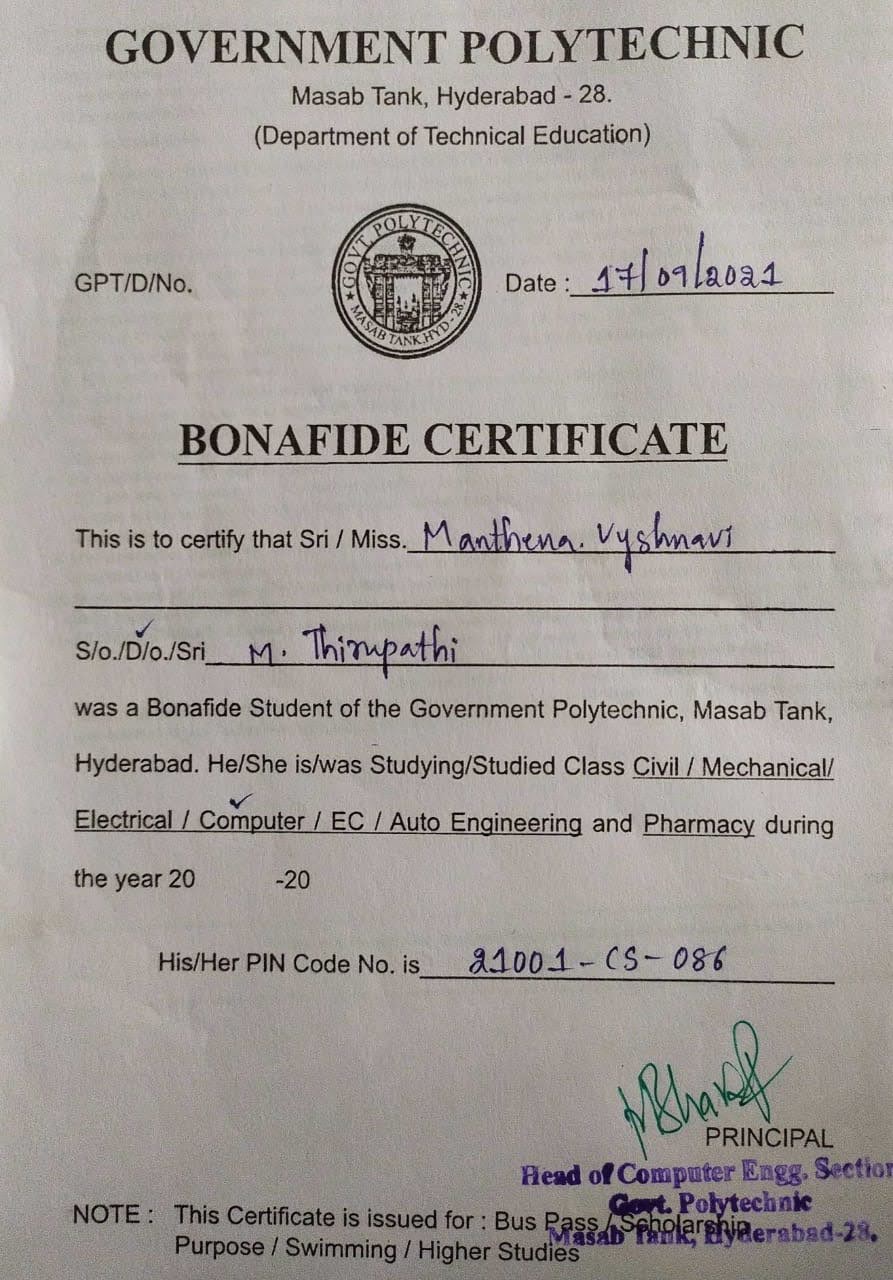 GOVERNMENT POLYTECHNIC
Masab Tank, Hyderabad - 28.
(Department of Technical Education)
GOVT. POLYTECHNIC
★ MASAB TANK, HYD - 28. ★
GPT/D/No. Date : 17/09/2021
BONAFIDE CERTIFICATE
This is to certify that Sri / Miss. Manthena. Vyshnavi
S/o./D/o./Sri M. Thirupathi
was a Bonafide Student of the Government Polytechnic, Masab Tank,
Hyderabad. He/She is/was Studying/Studied Class Civil / Mechanical/
Electrical / Computer / EC / Auto Engineering and Pharmacy during
the year 20 -20
His/Her PIN Code No. is 21001-CS-086
PRINCIPAL
Head of Computer Engg. Section
Govt. Polytechnic
Masab Tank, Hyderabad-28.
NOTE : This Certificate is issued for : Bus Pass / Scholarship
Purpose / Swimming / Higher Studies